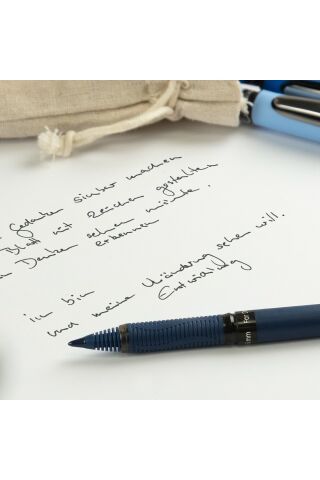 Gedanken sichtbar machen
Blatt mit Zeichen gestalten
Denken sehen möchte.
erkennen
ich bin
und meine Veränderung sehen will.
Entwicklung
For
mm